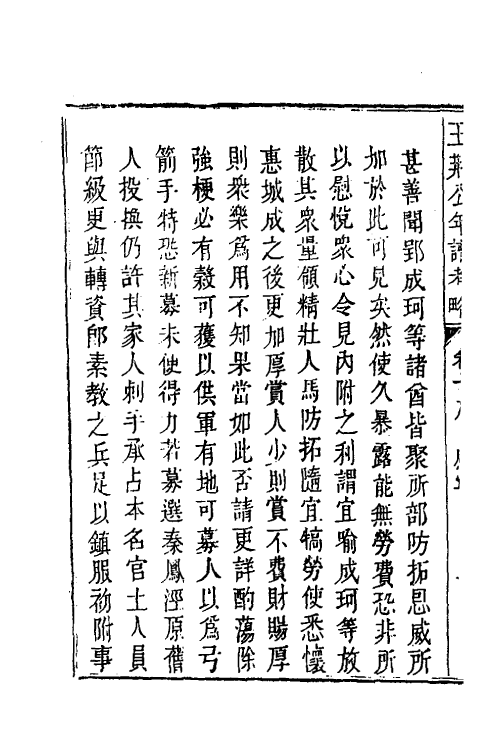 王荊公年譜考略
甚善聞郢成珂等諸酋皆聚所部防拓恩威所
加於此可見矣然使久暴露能無勞費恐非所
以慰悅衆心令見內附之利謂宜喻成珂等放
散其衆量領精壯人馬防拓隨宜犒勞使悉懷
惠城成之後更加厚賞人少則賞不費財賜厚
則衆樂爲用不知果當如此否請更詳酌蕩除
強梗必有穀可獲以供軍有地可募人以爲弓
箭手特恐新募未便得力若募選秦鳳涇原舊
人投換仍許其家人刺手承占本名官土人員
節級更與轉資郎素教之兵足以鎮服初附事